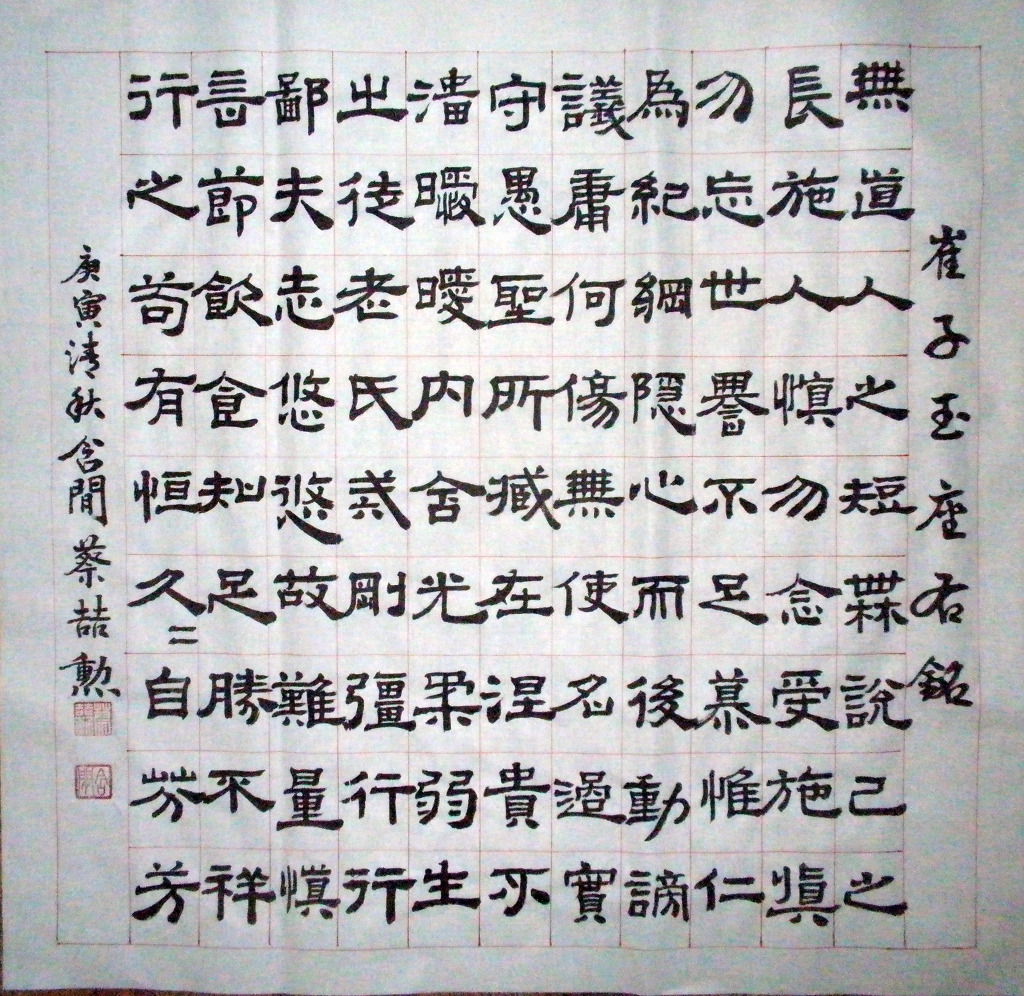 崔子玉座右銘
無道人之短無說己之
長施人慎勿念受施慎
勿忘世譽不足慕惟仁
為紀綱隱心而後動謗
議庸何傷無使名過實
守愚聖所臧在涅貴不
淄曖曖内含光柔弱生
之徒老氏戒剛彊行行
鄙夫志悠悠故難量慎
言節飲食知足勝不祥
行之苟有恒久二自芬芳
庚寅清秋含閒蔡喆勲